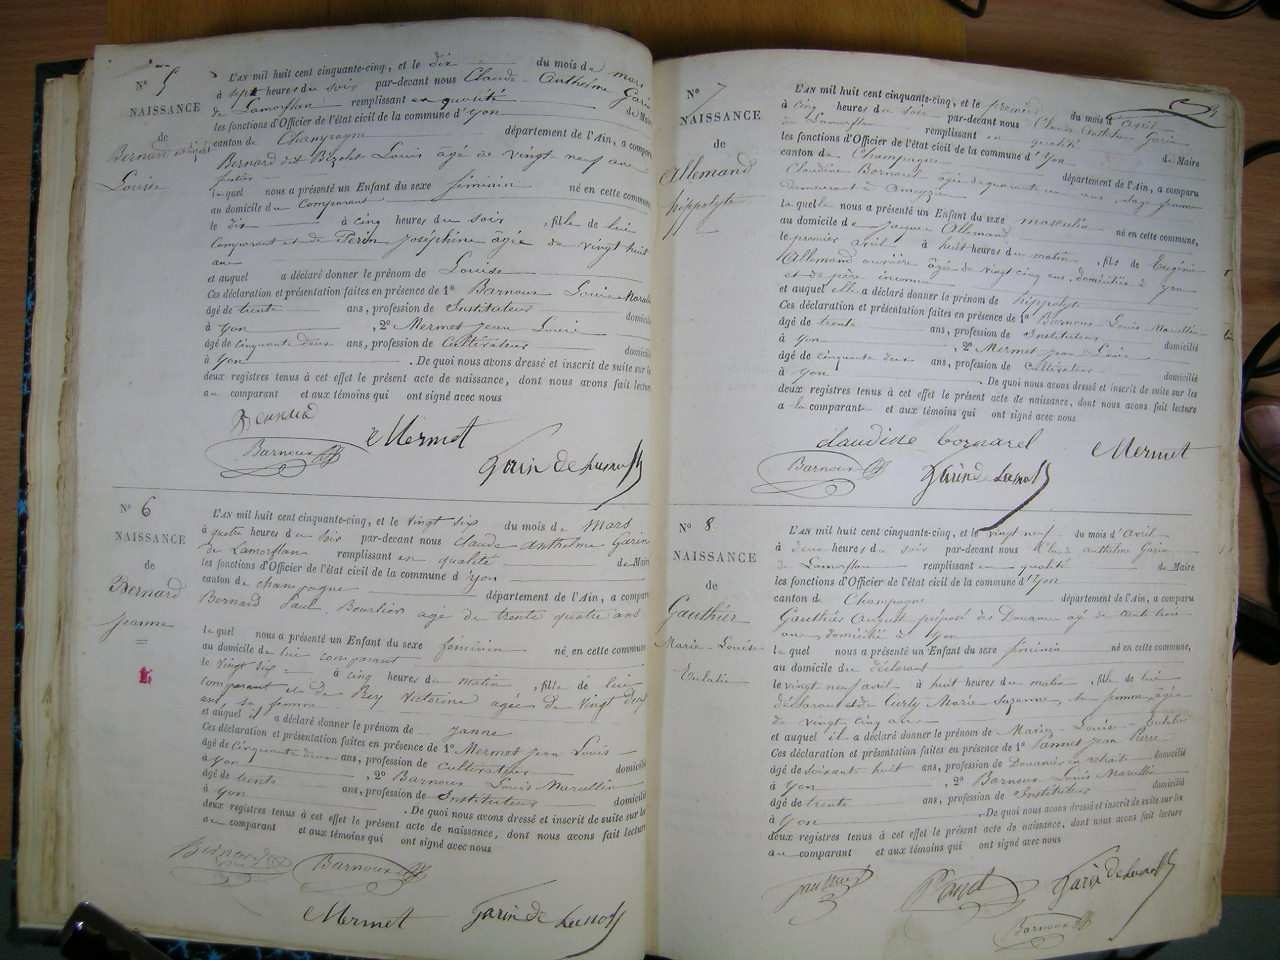 N° 5
NAISSANCE
de
Bernard
Louise
L'AN mil huit cent cinquante-cinq, et le dix du mois de mars
à sept heures du soir par-devant nous Claude-Anthelme Garin
de Lamorflan remplissant en qualité de Maire
les fonctions d'Officier de l'état civil de la commune d'Yon
canton de Champagne département de l'Ain, a comparu
Bernard dit Louis âgé de vingt neuf ans
lequel nous a présenté un Enfant du sexe féminin né en cette commune
au domicile du Comparant
le dix à cinq heures du soir, fille de lui
comparant et de Perin Joséphine âgée de vingt huit
ans
et auquel a déclaré donner le prénom de Louise
Ces déclaration et présentation faites en présence de 1° Barnoux Louis
âgé de trente ans, profession de Instituteur domicilié
à Yon, 2° Mermet jean Louis
âgé de cinquante deux ans, profession de Cultivateur domicilié
à Yon. De quoi nous avons dressé et inscrit de suite sur les
deux registres tenus à cet effet le présent acte de naissance, dont nous avons fait lecture
au comparant et aux témoins qui ont signé avec nous
Bernard
Mermet
Barnoux
Garin de Lamorf
N° 6
NAISSANCE
de
Bernard
jeanne
L'AN mil huit cent cinquante-cinq, et le vingt six du mois de Mars
à quatre heures du soir par-devant nous Claude Anthelme Garin
de Lamorflan remplissant en qualité de Maire
les fonctions d'Officier de l'état civil de la commune d'Yon
canton de champagne département de l'Ain, a comparu
Bernard Paul Bourlier âgé de trente quatre ans
lequel nous a présenté un Enfant du sexe féminin né, en cette commune
au domicile de lui comparant
le vingt six à cinq heures du matin, fille de lui
comparant et de Rey victorine agée de vingt sept
ans, sa femme
et auquel il a déclaré donner le prénom de janne
Ces déclaration et présentation faites en présence de 1° Mermet jean Louis
âgé de Cinquante deux ans, profession de Cultivateur domicilié
à Yon, 2° Barnoux Louis Marcellin
âgé de trente ans, profession de Instituteur domicilié
à Yon. De quoi nous avons dressé et inscrit de suite sur les
deux registres tenus à cet effet le présent acte de naissance, dont nous avons fait lecture
au comparant et aux témoins qui ont signé avec nous
Barnoux
Mermet
Garin de Lamorf
N° 7
NAISSANCE
de
Allemand
hippolyte
L'AN mil huit cent cinquante-cinq, et le premier du mois d'Avril
à cinq heures du soir par-devant nous Claude Anthelme Garin
de Lamorflan remplissant en qualité de Maire
les fonctions d'Officier de l'état civil de la commune d'Yon
canton de Champagne département de l'Ain, a comparu
Claudine Bornarel âgée de quarante un ans, sage femme
demeurant à Ameyzieu
laquelle nous a présenté un Enfant du sexe masculin né en cette commune,
au domicile de jacques Allemand
le premier avril à huit heures du matin, fils de Eugénie
Allemand ouvrière âgée de vingt cinq ans, domiciliée à Yon
et de père inconnu
et auquel elle a déclaré donner le prénom de hippolyte
Ces déclaration et présentation faites en présence de 1° Barnoux Louis Marcellin
âgé de trente ans, profession de Instituteur domicilié
à Yon, 2° Mermet jean Louis
âgé de cinquante deux ans, profession de Cultivateur domicilié
à Yon. De quoi nous avons dressé et inscrit de suite sur les
deux registres tenus à cet effet le présent acte de naissance, dont nous avons fait lecture
a la comparante et aux témoins qui ont signé avec nous
claudine bornarel
Mermet
Barnoux
Garin de Lamorf
N° 8
NAISSANCE
de
Gauthier
Marie-Louise
Eulalie
L'AN mil huit cent cinquante-cinq, et le vingt neuf du mois d'Avril
à deux heures du soir par-devant nous Claude anthelme Garin
de Lamorflan remplissant en qualité de Maire
les fonctions d'Officier de l'état civil de la commune d'Yon
canton de Champagne département de l'Ain, a comparu
Gauthier August préposé des Douanes âgé de trente trois
ans, domicilié à Yon
lequel nous a présenté un Enfant du sexe féminin né en cette commune,
au domicile du déclarant
le vingt neuf avril à huit heures du matin, fille de lui
déclarant et de Curty Marie Suzanne sa femme, agée
de vingt cinq ans
et auquel il a déclaré donner le prénom de Marie-Louise-Eulalie
Ces déclaration et présentation faites en présence de 1° jean Pierre
âgé de soixante huit ans, profession de Douanier en retraite domicilié
à Yon, 2° Barnoux Louis Marcellin
âgé de trente ans, profession de Instituteur domicilié
à Yon. De quoi nous avons dressé et inscrit de suite sur les
deux registres tenus à cet effet le présent acte de naissance, dont nous avons fait lecture
au comparant et aux témoins qui ont signé avec nous
Garin de Lamorf
Barnoux